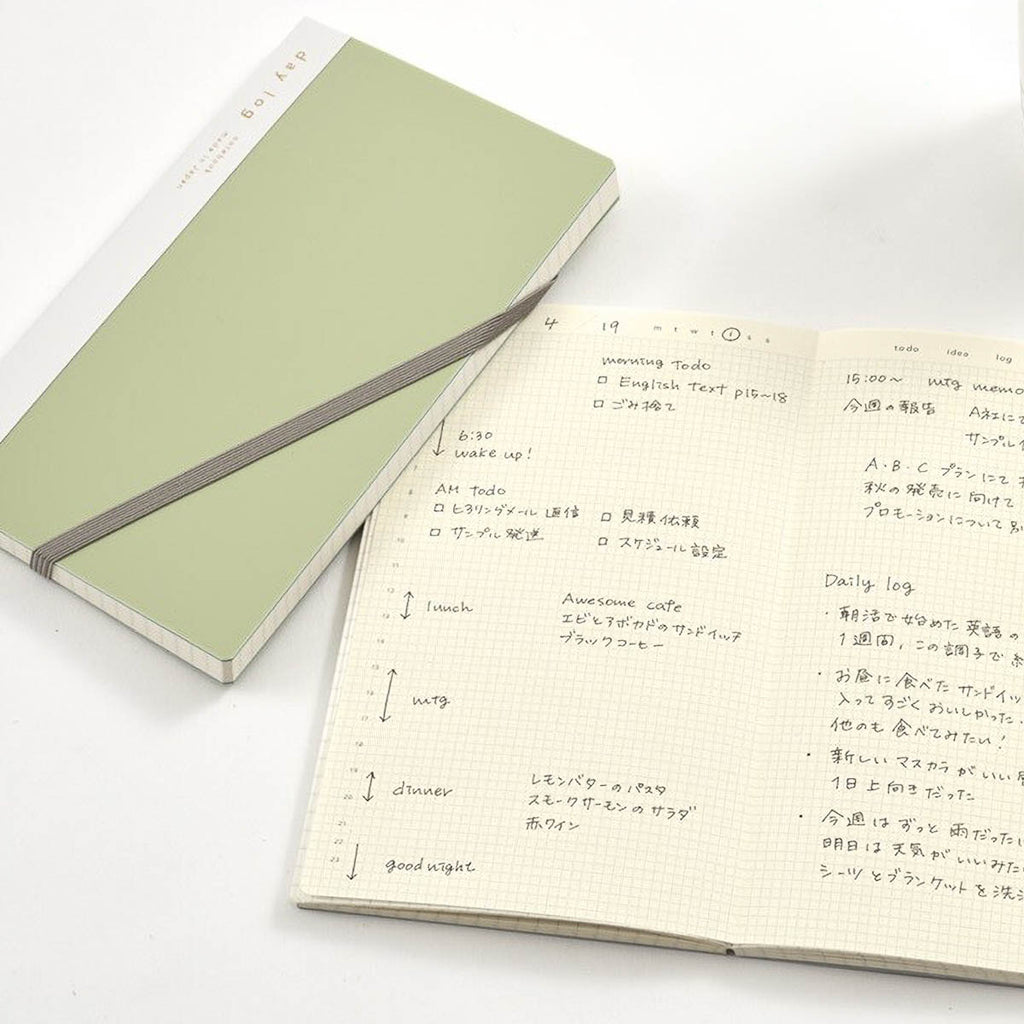 day log
notebook
made in Japan
4 / 19 m t w t f s s
morning todo
□ English text p15~18
□ ごみ捨て
6:30
wake up!
AM todo
□ ヒアリングメール 返信
□ サンプル発送
□ 見積依頼
□ スケジュール設定
lunch
Awesome cafe
エビとアボカドのサンドイッチ
ブラックコーヒー
mtg
dinner
レモンバターのパスタ
スモークサーモンのサラダ
赤ワイン
good night
todo idea log
15:00~ mtg memo
今週の報告 A社にて
サンプル
A・B・C プランにて
秋の発売に向けて
プロモーションについて
Daily log
・朝活で始めた英語の
1週間，この調子で
・お昼に食べたサンドイッ
入ってすごくおいしかった
他のも食べてみたい！
・新しいマスカラがいい
1日上向きだった
・今週はずっと雨だった
明日は天気がいいみた
シーツとブランケットを洗